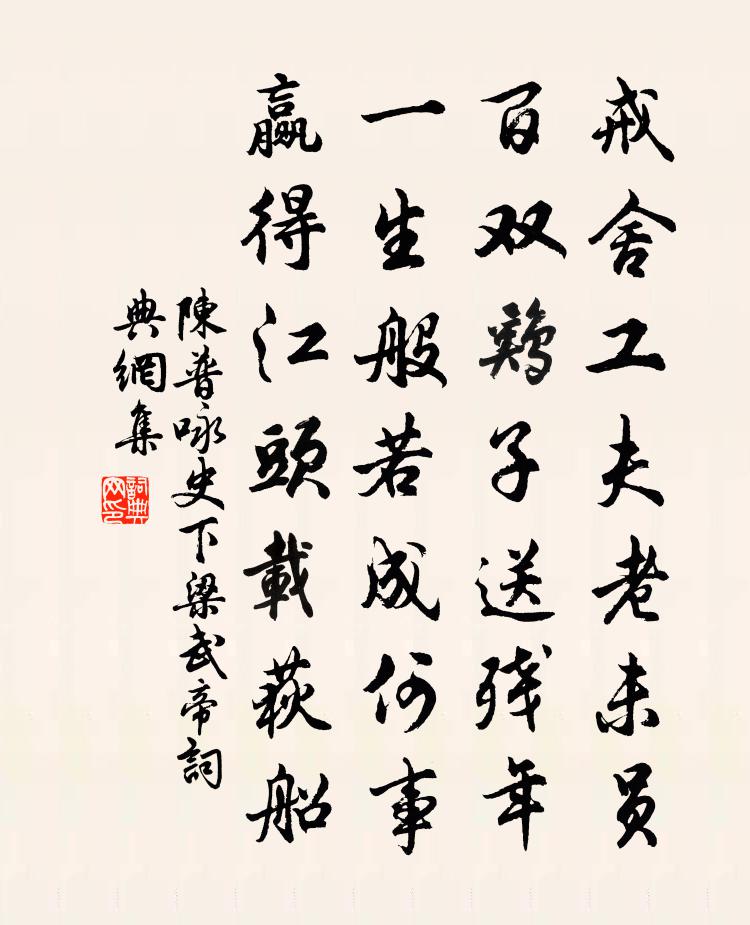 戒舍工夫老未员
百双鷄子送残年
一生般若成何事
赢得江頭載荻船
陳普咏史下梁武帝詞
典網集
詞典网印